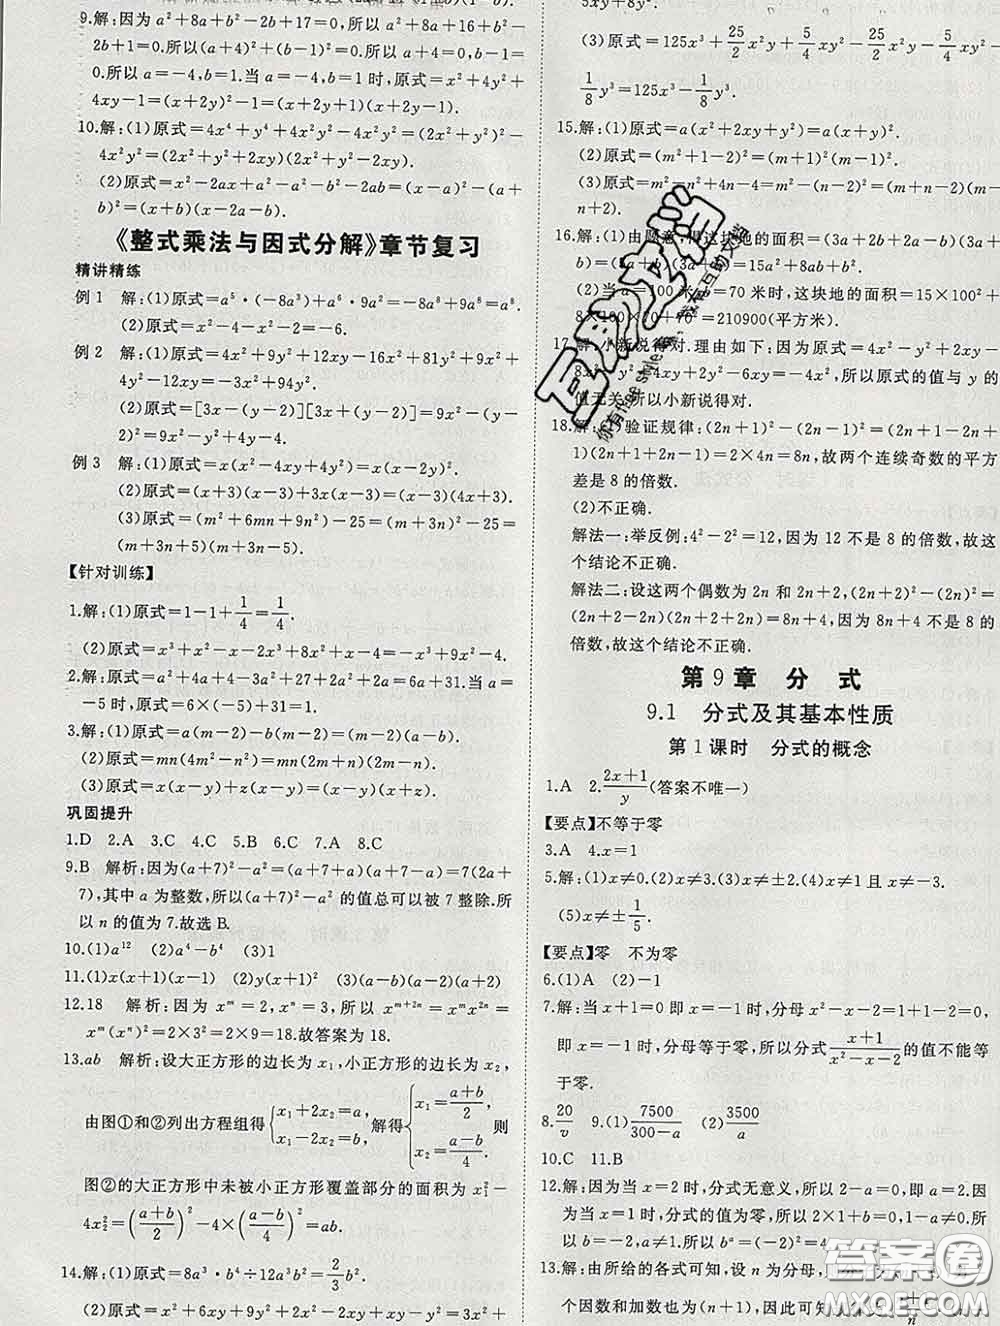 9.解:因为a²+8a+b²-2b+17=0,所以a²+8a+16+b²-
2b+1=0,所以(a+4)²+(b-1)²=0.所以a+4=0,b-1=
0.所以a=-4,b=1.当a=-4,b=1时,原式=x²+4y²+
4xy-1=(x+2y)²-1=(x+2y+1)(x+2y-1).
10.解:(1)原式=4x⁴+y⁴+4x²y²-4x²y²=(2x²+y²)²-
4x²y²=(2x²+y²+2xy)(2x²+y²-2xy).
(2)原式=x²-2ax+a²-a²-b²-2ab=(x-a)²-(a+
b)²=(x+b)(x-2a-b).
《整式乘法与因式分解》章节复习
精讲精练
例1 解:(1)原式=a⁵·(-8a³)+a⁶·9a²=-8a⁸+9a⁸=a⁸.
(2)原式=x²-4-x²-2=-6.
例2 解:(1)原式=4x²+9y²+12xy-16x²+81y²+9x²-
4y²-12xy=-3x²+94y².
(2)原式=[3x-(y-2)][3x+(y-2)]=9x²-(y-2)²
=9x²-y²+4y-4.
例3 解:(1)原式=x(x²-4xy+4y²)=x(x-2y)².
(2)原式=4x(x-3)+3(x-3)=(x-3)(4x+3).
(3)原式=(m²+6mn+9n²)-25=(m+3n)²-25=
(m+3n+5)(m+3n-5).
【针对训练】
1.解:(1)原式=1-1+1/4=1/4.
(2)原式=x³+x²-x-2x³+3x²-8x=-x³+4x²-9x.
2.解:原式=a²+4a+4-9a²-27a+27a+8a²+2a=6a+31.当a=
-5时,原式=6×(-5)+31=1.
3.解:(1)原式=a(m-2)-b(m-2)=(m-2)(a-b).
(2)原式=mn(m²-4n²)=mn(m+2n)(m-2n).
(3)原式=x(x-y)+z(x-y)=(x-y)(x+z).
巩固提升
1.D 2.A 3.C 4.C 5.B 6.C 7.A 8.C
9.B 解析:因为(a+7)²-a²=(a+7+a)(a+7-a)=7(2a+
7),其中a为整数,所以(a+7)²-a²的值总可以被7整除.所
以n的值为7.故选B.
10.(1)a¹² (2)a⁴-b⁴ (3)1
11.(1)x(x+1)(x-1) (2)y(x+1)² (3)(a-b)(a-2)(a+2)
12.18 解析:因为xᵐ=2,xⁿ=3,所以xᵐ⁺²ⁿ=xᵐx²ⁿ=
xᵐ(xⁿ)²=2×3²=2×9=18.故答案为18.
13.ab 解析:设大正方形的边长为x₁,小正方形的边长为x₂,
由图①和②列出方程组得{x₁+2x₂=a, x₁-2x₂=b, 解得{x₁=(a+b)/2, x₂=(a-b)/4. 则
图②的大正方形中未被小正方形覆盖部分的面积为x₁²-
4x₂²=((a+b)/2)²-4×((a-b)/4)²=ab.
14.解:(1)原式=8a³·b⁴÷12a³b²=2/3 b².
(2)原式=
5xy+8y².
(3)原式=125x³+25/2 x²y+5/4 xy²-25/2 x²y-5/4 xy²-
1/8 y³=125x³-1/8 y³.
15.解:(1)原式=a(x²+2xy+y²)=a(x+y)².
(2)原式=(m²+1-2)²=(m+1)²(m-1)².
(3)原式=m²-n²+4n-4=m²-(n-2)²=(m+n-2)(m-
n+2).
16.解:(1)由题意,得这块地的面积=(3a+2b+2a-b)(3a+
15a²+8ab+b².
(2)当a=100米,b=70米时,这块地的面积=15×100²+
8×100×70+70²=210900(平方米).
17.解:小新说得对.理由如下:因为原式=4x²-y²+2xy+
4xy+2y²-6xy=-4x²,所以原式的值与y的
值无关.所以小新说得对.
18.解:(1)验证规律:(2n+1)²-(2n-1)²=(2n+1-2n+
1)(2n+1+2n-1)=2×4n=8n,故两个连续奇数的平方
差是8的倍数.
(2)不正确.
解法一:举反例:4²-2²=12,因为12不是8的倍数,故这
个结论不正确.
解法二:设这两个偶数为2n和2n+2,(2n+2)²-(2n)²=
(2n+2-2n)(2n+2+2n)=8n+4,因为8n+4不是8的
倍数,故这个结论不正确.
第9章 分 式
9.1 分式及其基本性质
第1课时 分式的概念
1.A 2.(2x+1)/y(答案不唯一)
【要点】不等于零
3.A 4.x=1
5.解:(1)x≠0.(2)x≠3.(3)x≠2.(4)x≠1且x≠-3.
(5)x≠±1/5.
【要点】零 不为零
6.(1)A (2)-1
7.解:当x+1=0即x=-1时,分母x²-x-2=1+1-2=0,
即x=-1时,分母等于零,所以分式(x+1)/(x²-x-2)的值不能等
于零.
8.20/v 9.(1)7500/(300-a) (2)3500/a
10.C 11.B
12.解:因为当x=2时,分式无意义,所以2-a=0,即a=2.因
为当x=1时,分式的值为零,所以2×1+b=0,1-a≠0.所
以b=-2,所以bᵃ=(-2)²=4.
13.解:由所给的各式可知,设n为分母,
个因数和加数也为(n+1),因此可知
互助文档
你有free style嘛,我有互助文档
答案圈